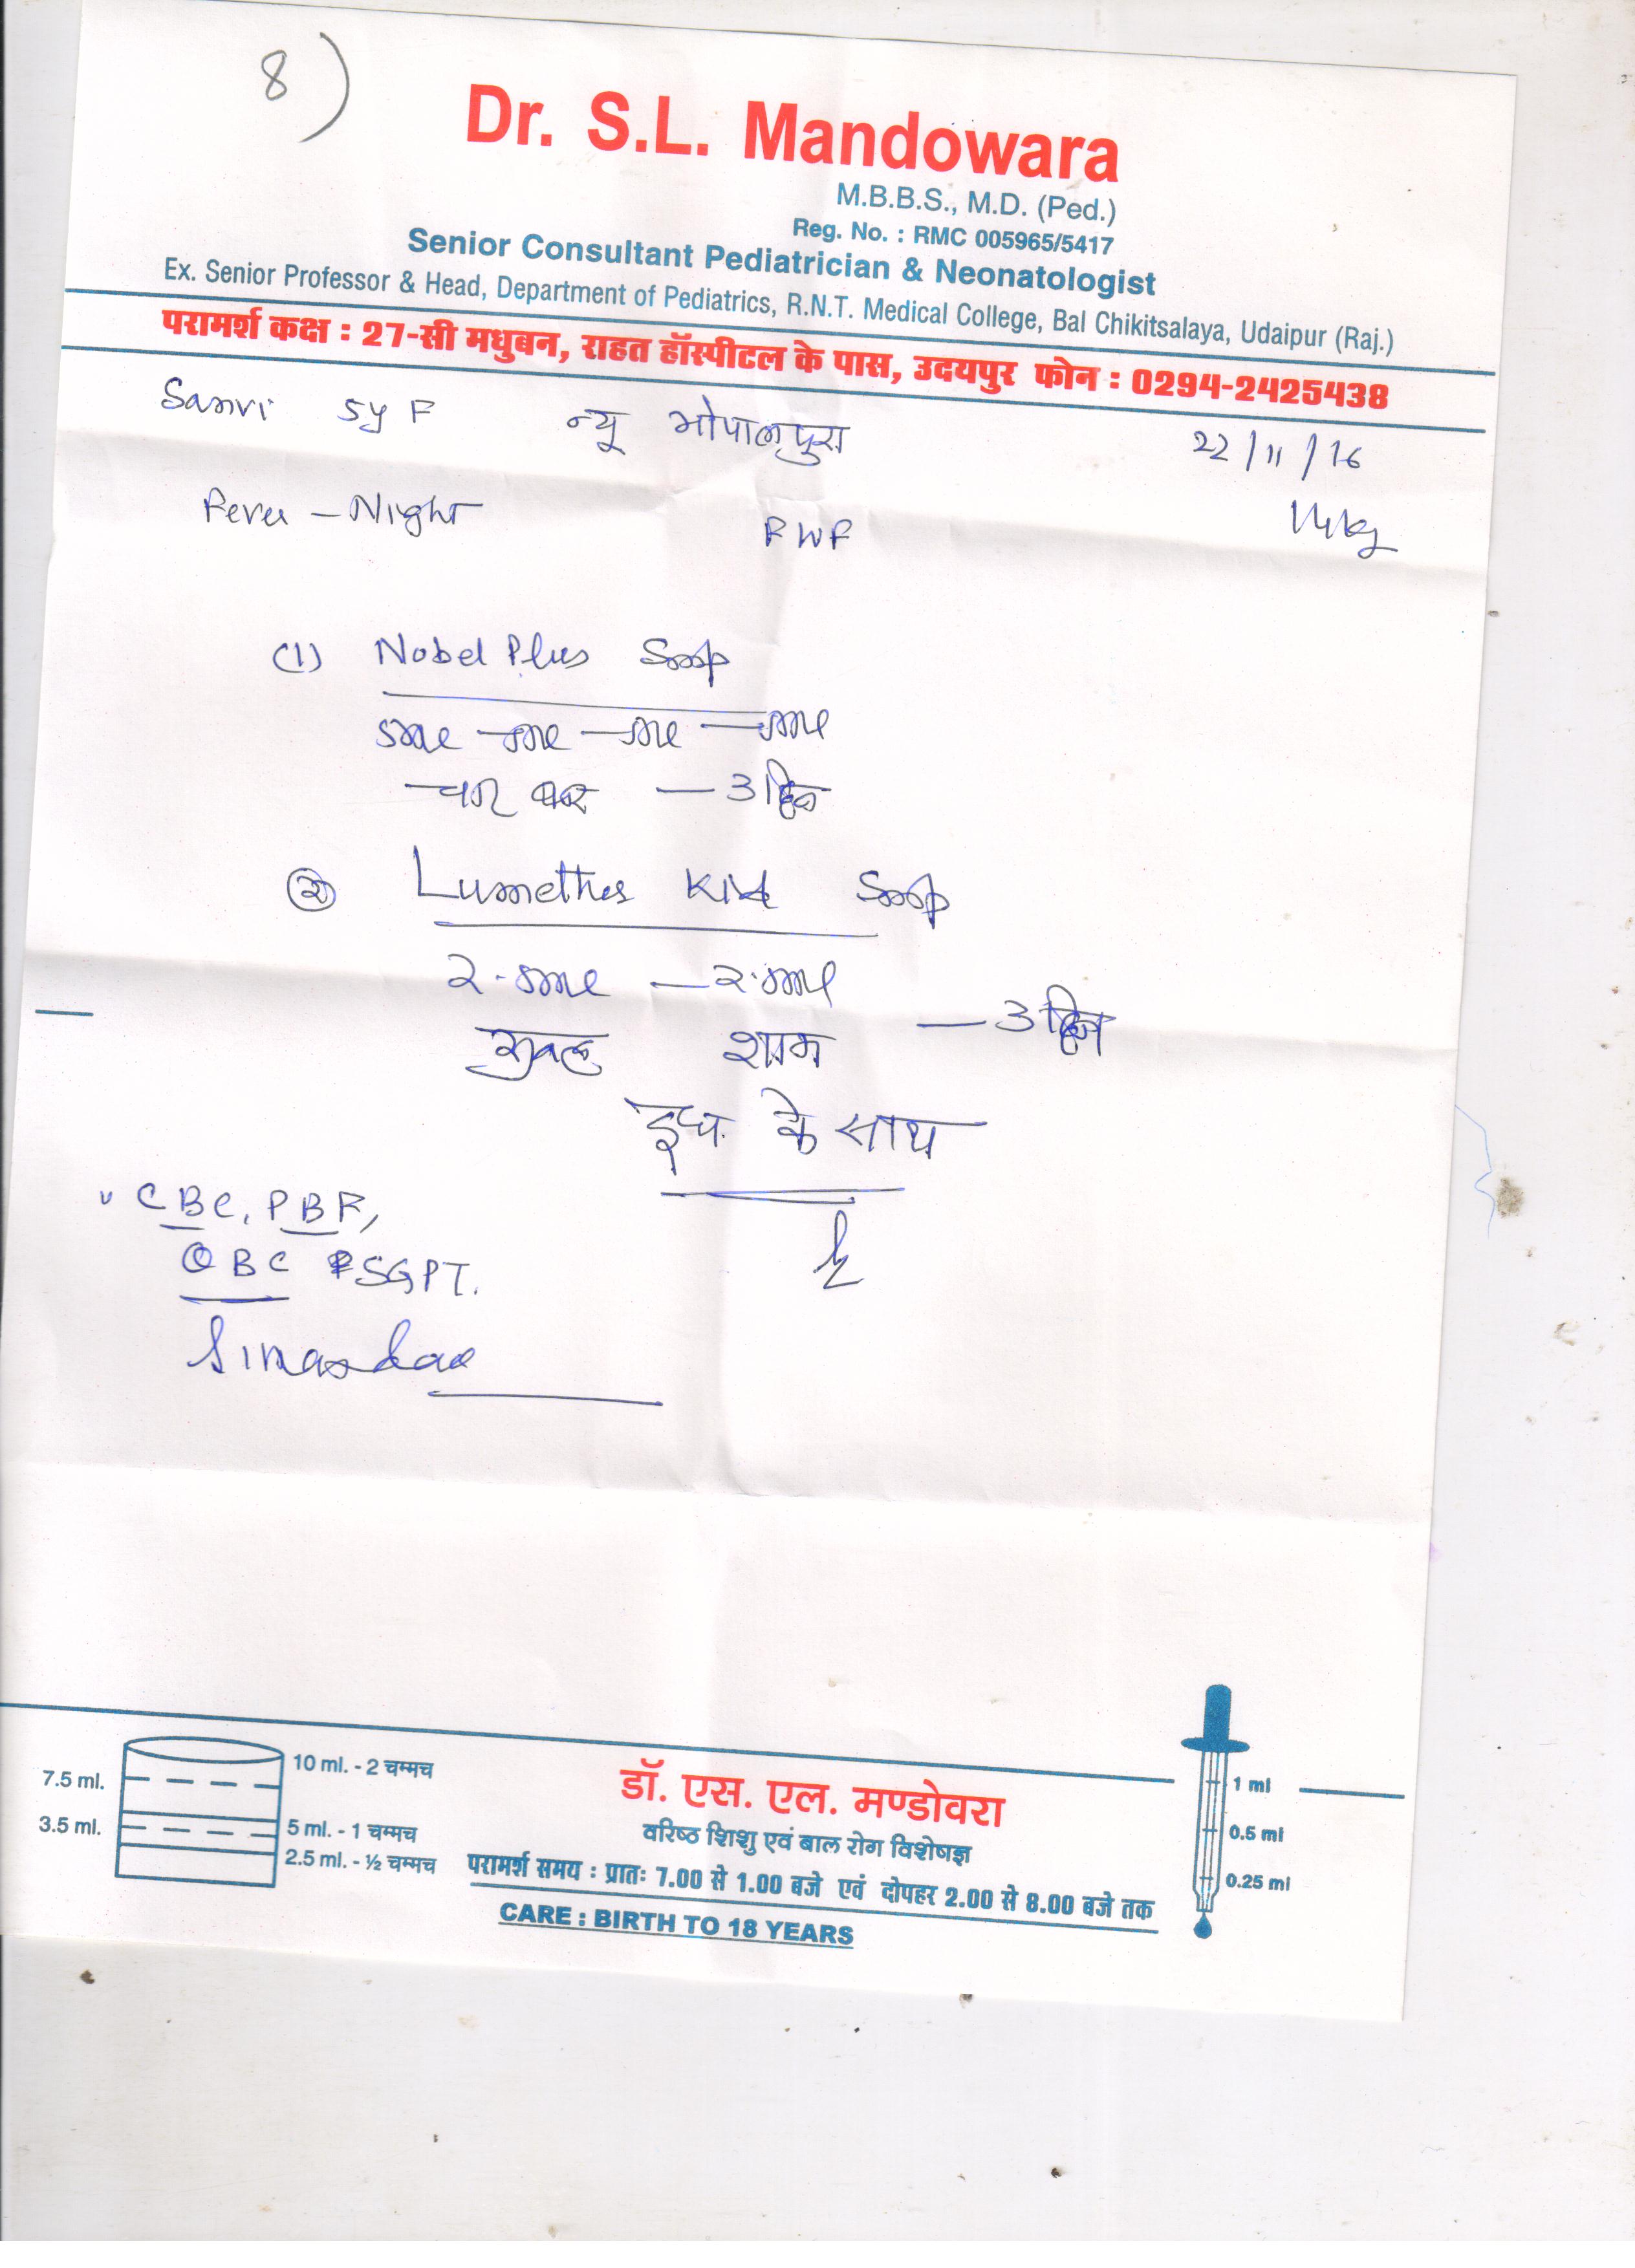 8)
Dr. S.L. Mandowara
M.B.B.S., M.D. (Ped.)
Reg. No. : RMC 005965/5417
Senior Consultant Pediatrician & Neonatologist
Ex. Senior Professor & Head, Department of Pediatrics, R.N.T. Medical College, Bal Chikitsalaya, Udaipur (Raj.)
परामर्श कक्ष : 27-सी मधुबन, राहत हॉस्पीटल के पास, उदयपुर फोन : 0294-2425438
Sanvi 5y F न्यू भोपालपुरा 22/11/16
Fever - Night FWF 14kg
(1) Nobel Plus
चार बार - 3 दिन
(2) Lumether Kid
सुबह शाम - 3 दिन
दूध के साथ
CBC, PBF,
QBC SGPT.
7.5 ml. 10 ml. - 2 चम्मच
3.5 ml. 5 ml. - 1 चम्मच
2.5 ml. - ½ चम्मच
डॉ. एस. एल. मण्डोवरा
वरिष्ठ शिशु एवं बाल रोग विशेषज्ञ
परामर्श समय : प्रातः 7.00 से 1.00 बजे एवं दोपहर 2.00 से 8.00 बजे तक
CARE : BIRTH TO 18 YEARS
1 ml
0.5 ml
0.25 ml